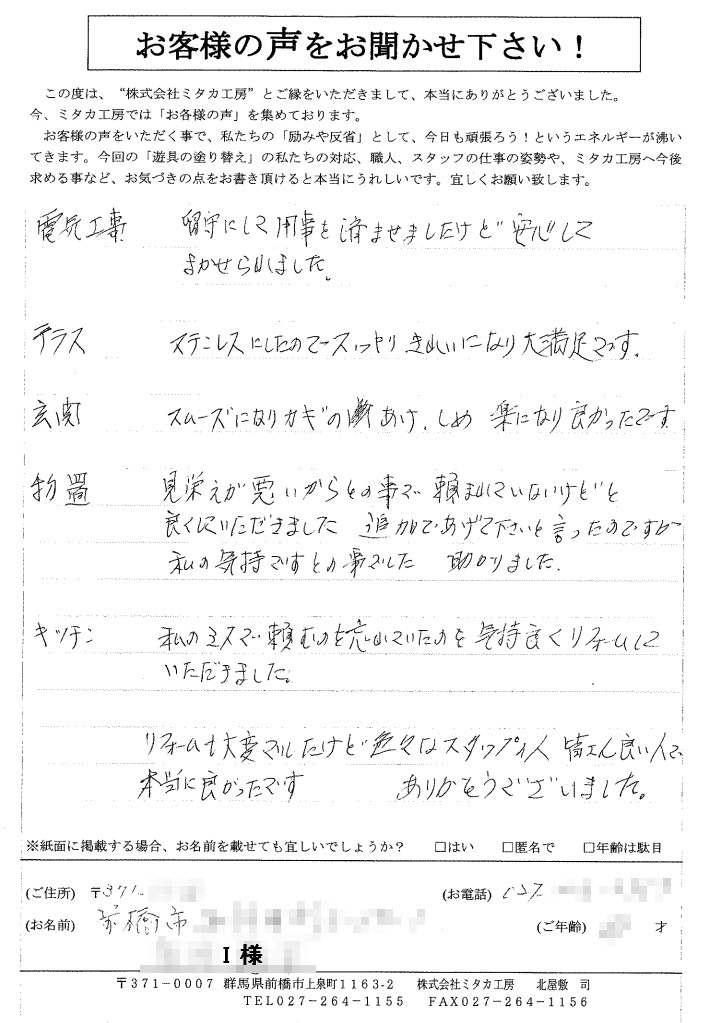 お客様の声をお聞かせ下さい！
この度は、“株式会社ミタカ工房”とご縁をいただきまして、本当にありがとうございました。
今、ミタカ工房では「お各様の声」を集めております。
お客様の声をいただく事で、私たちの「励みや反省」として、今日も頑張ろう！というエネルギーが沸い
てきます。今回の「遊具の塗り替え」の私たちの対応、職人、スタッフの仕事の姿勢や、ミタカ工房へ今後
求める事など、お気づきの点をお書き頂けると本当にうれしいです。宜しくお願い致します。
電気工事 留守にして用事を済ませましたけど安心して
まかせられました。
テラス ステンレスにしたのでスッキリきれいになり大満足です。
玄関 スムーズになりカギのあけ、しめ 楽になり良かったです
物置 見栄えが悪いからとの事で頼まれていないけどと
良くしていただきました 追加であげて下さいと言ったのですが
私の気持ですとの事でした 助かりました。
キッチン 私のミスで頼むのを忘れていたのを気持良くリフォームして
いただきました。
リフォームも大変でしたけど色々なスタッフさん 皆さん良い人で
本当に良かったです ありがとうございました。
※紙面に掲載する場合、お名前を載せても宜しいでしょうか？ □はい □匿名で □年齢は駄目
(ご住所) 〒371- (お電話) 027
(お名前) 前橋市 (ご年齢) 才
I 様
〒371-0007 群馬県前橋市上泉町1163-2 株式会社ミタカ工房 北屋敷 司
TEL027-264-1155 FAX027-264-1156